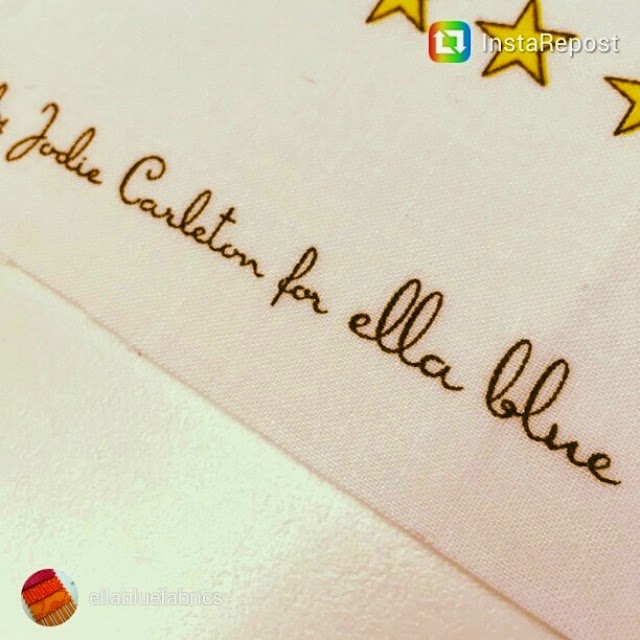 InstaRepost
by Jodie Carleton for ella blue
ellabluefabrics